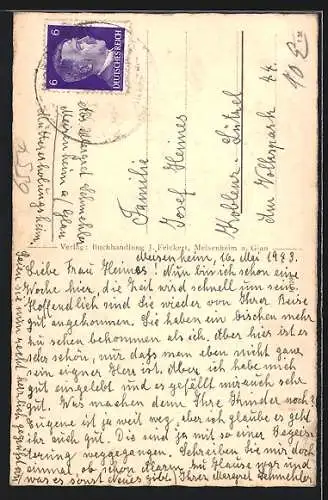 DEUTSCHES REICH
6 6
Abs. Margret Schmehler
Meisenheim a/Glan
Müttererholungsheim.
Familie
Josef Heimes
Koblenz-Lützel
Am Volkspark 44.
Verlag: Buchhandlung J. Feickert, Meisenheim a. Glan
Meisenheim, 16. Mai 1943.
Liebe Frau Heimes! Nun bin ich schon eine
Woche hier, die Zeit wird schnell um sein.
Hoffendlich sind Sie wieder von Ihrer Reise
gut angekommen. Sie haben ein bischen mehr
zu sehen bekommen als ich. Aber hier ist es
sehr schön, nur daß man eben nicht ganz
sein eigner Herr ist. Aber ich habe mich
gut eingelebt und es gefällt mir auch sehr
gut. Was machen denn Ihre Kinder noch?
Eugene ist ja weit weg, aber ich glaube es geht
ihr auch gut. Die sind ja mit so einer Begeis-
terung weggegangen. Schreiben Sie mir doch
einmal, ob schon Alarm zu Hause war und
was es sonst neues gibt. Ihre Margret Schmehler
Seien sie nun recht herzlich gegrüßt von